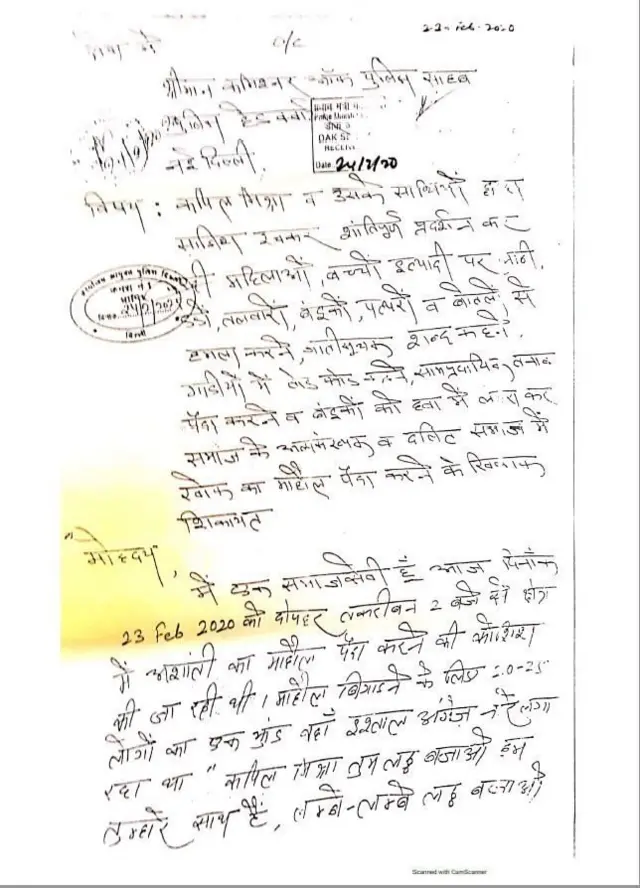 22-Feb-2020
सेवा में
O/C
श्रीमान कमिश्नर ऑफ पुलिस साहब
पुलिस हेड क्वा.
नई दिल्ली
DAK
Date 24/2/20
विषय : कपिल मिश्रा व उसके साथियों द्वारा
साजिश रचकर शांतिपूर्ण प्रदर्शन कर
रही महिलाओं, बच्चों इत्यादि पर लाठी,
डंडों, तलवारों, बंदूकों, पत्थरों व बोतलों से
हमला करने, जातिसूचक शब्द कहने,
गाडीयों में तोड फोड करने, साम्प्रदायिक तनाव
पैदा करने व बंदूकों को हवा में लहरा कर
समाज के अल्पसंख्यक व दलित समाज में
खौफ का माहौल पैदा करने के खिलाफ
शिकायत
"मोहदय,
में एक समाजसेवी हूँ आज दिनाँक
23 Feb 2020 को दोपहर तकरीबन 2 बजे क्षेत्र
में अशांती का माहौल पैदा करने की कोशिश
की जा रही थी। माहौल बिगाडने के लिए 20-25
लोगों का एक झुंड वहाँ इश्ताल अंगेज नारे लगा
रहा था " कपिल मिश्रा तुम लठ्ठ बजाओ हम
तुम्हारे साथ हैं, लम्बे-लम्बे लठ्ठ बजाओ
Scanned with CamScanner